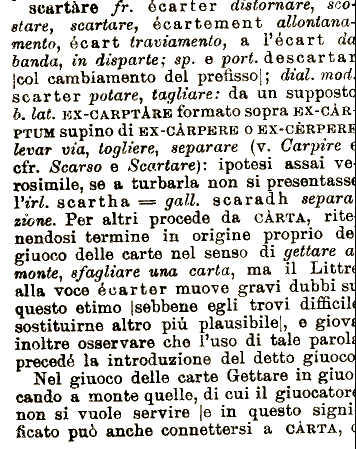 scartàre fr. écarter distornare, sco-
stare, scartare, écartement allontana-
mento, écart traviamento, a l'écart da
banda, in disparte; sp. e port. descartar
|col cambiamento del prefisso|; dial. mod.
scarter potare, tagliare: da un supposto
b. lat. EX-CARPTÀRE formato sopra EX-CÀR-
PTUM supino di EX-CÀRPERE O EX-CÈRPERE
levar via, togliere, separare (v. Carpire e
cfr. Scarso e Scartare): ipotesi assai ve-
rosimile, se a turbarla non si presentasse
l'irl. scartha = gall. scaradh separa-
zione. Per altri procede da CÀRTA, rite-
nendosi termine in origine proprio del
giuoco delle carte nel senso di gettare a
monte, sfagliare una carta, ma il Littré
alla voce écarter muove gravi dubbi su
questo etimo |sebbene egli trovi difficile
sostituirne altro più plausibile|, e giova
inoltre osservare che l'uso di tale parola
precedé la introduzione del detto giuoco
Nel giuoco delle carte Gettare in giuo-
cando a monte quelle, di cui il giuocatore
non si vuole servire |e in questo signi-
ficato può anche connettersi a CÀRTA,